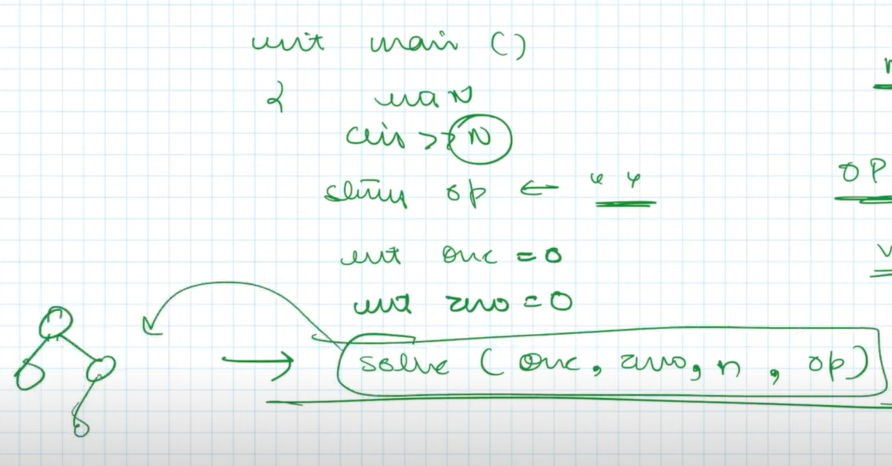 int main ()
{ int N
cin >> N
string op ← " "
OP
int one = 0
int zero = 0
solve (one, zero, n, op)